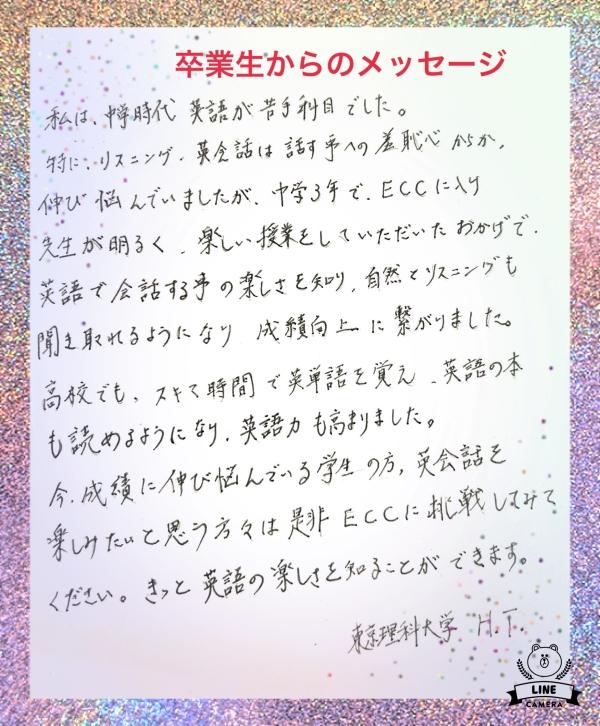 卒業生からのメッセージ
私は、中学時代 英語が苦手科目でした。
特に、リスニング、英会話は話す事への羞恥心からか、
伸び悩んでいましたが、中学3年で、ECCに入り
先生が明るく、楽しい授業をしていただいたおかげで、
英語で会話する事の楽しさを知り、自然とリスニングも
聞き取れるようになり 成績向上に繋がりました。
高校でも、スキマ時間で英単語を覚え、英語の本
も読めるようになり、英語力も高まりました。
今、成績に伸び悩んでいる学生の方、英会話を
楽しみたいと思う方々は是非ECCに挑戦してみて
ください。きっと英語の楽しさを知ることができます。
東京理科大学 H.T.
LINE
CAMERA